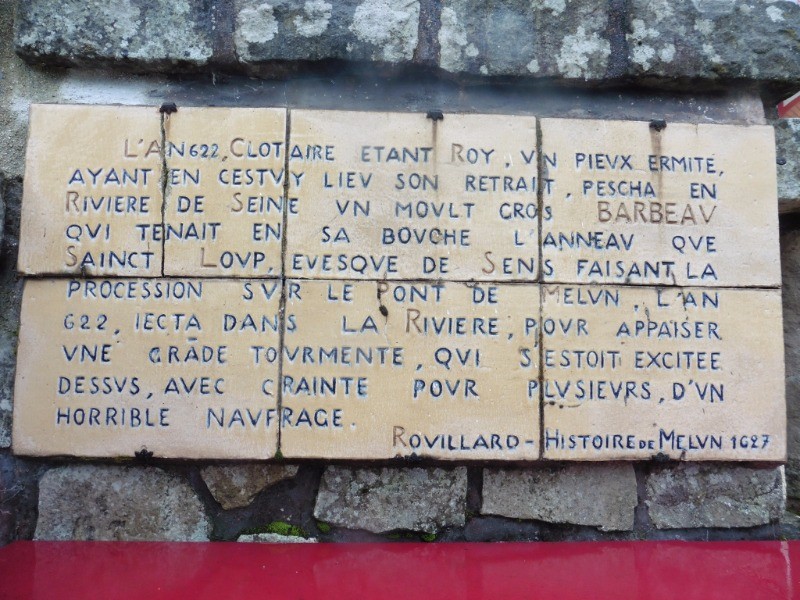 L'AN 622, CLOTAIRE ETANT ROY, VN PIEVX ERMITE,
AYANT EN CESTVY LIEV SON RETRAIT, PESCHA EN
RIVIERE DE SEINE VN MOVLT GROS BARBEAV
QVI TENAIT EN SA BOVCHE L'ANNEAV QVE
SAINCT LOVP, EVESQVE DE SENS FAISANT LA
PROCESSION SVR LE PONT DE MELVN, L'AN
622, IECTA DANS LA RIVIERE, POVR APPAISER
VNE GRĀDE TOVRMENTE, QVI S'ESTOIT EXCITEE
DESSVS, AVEC CRAINTE POVR PLVSIEVRS, D'VN
HORRIBLE NAVFRAGE.
ROVILLARD - HISTOIRE DE MELVN 1627